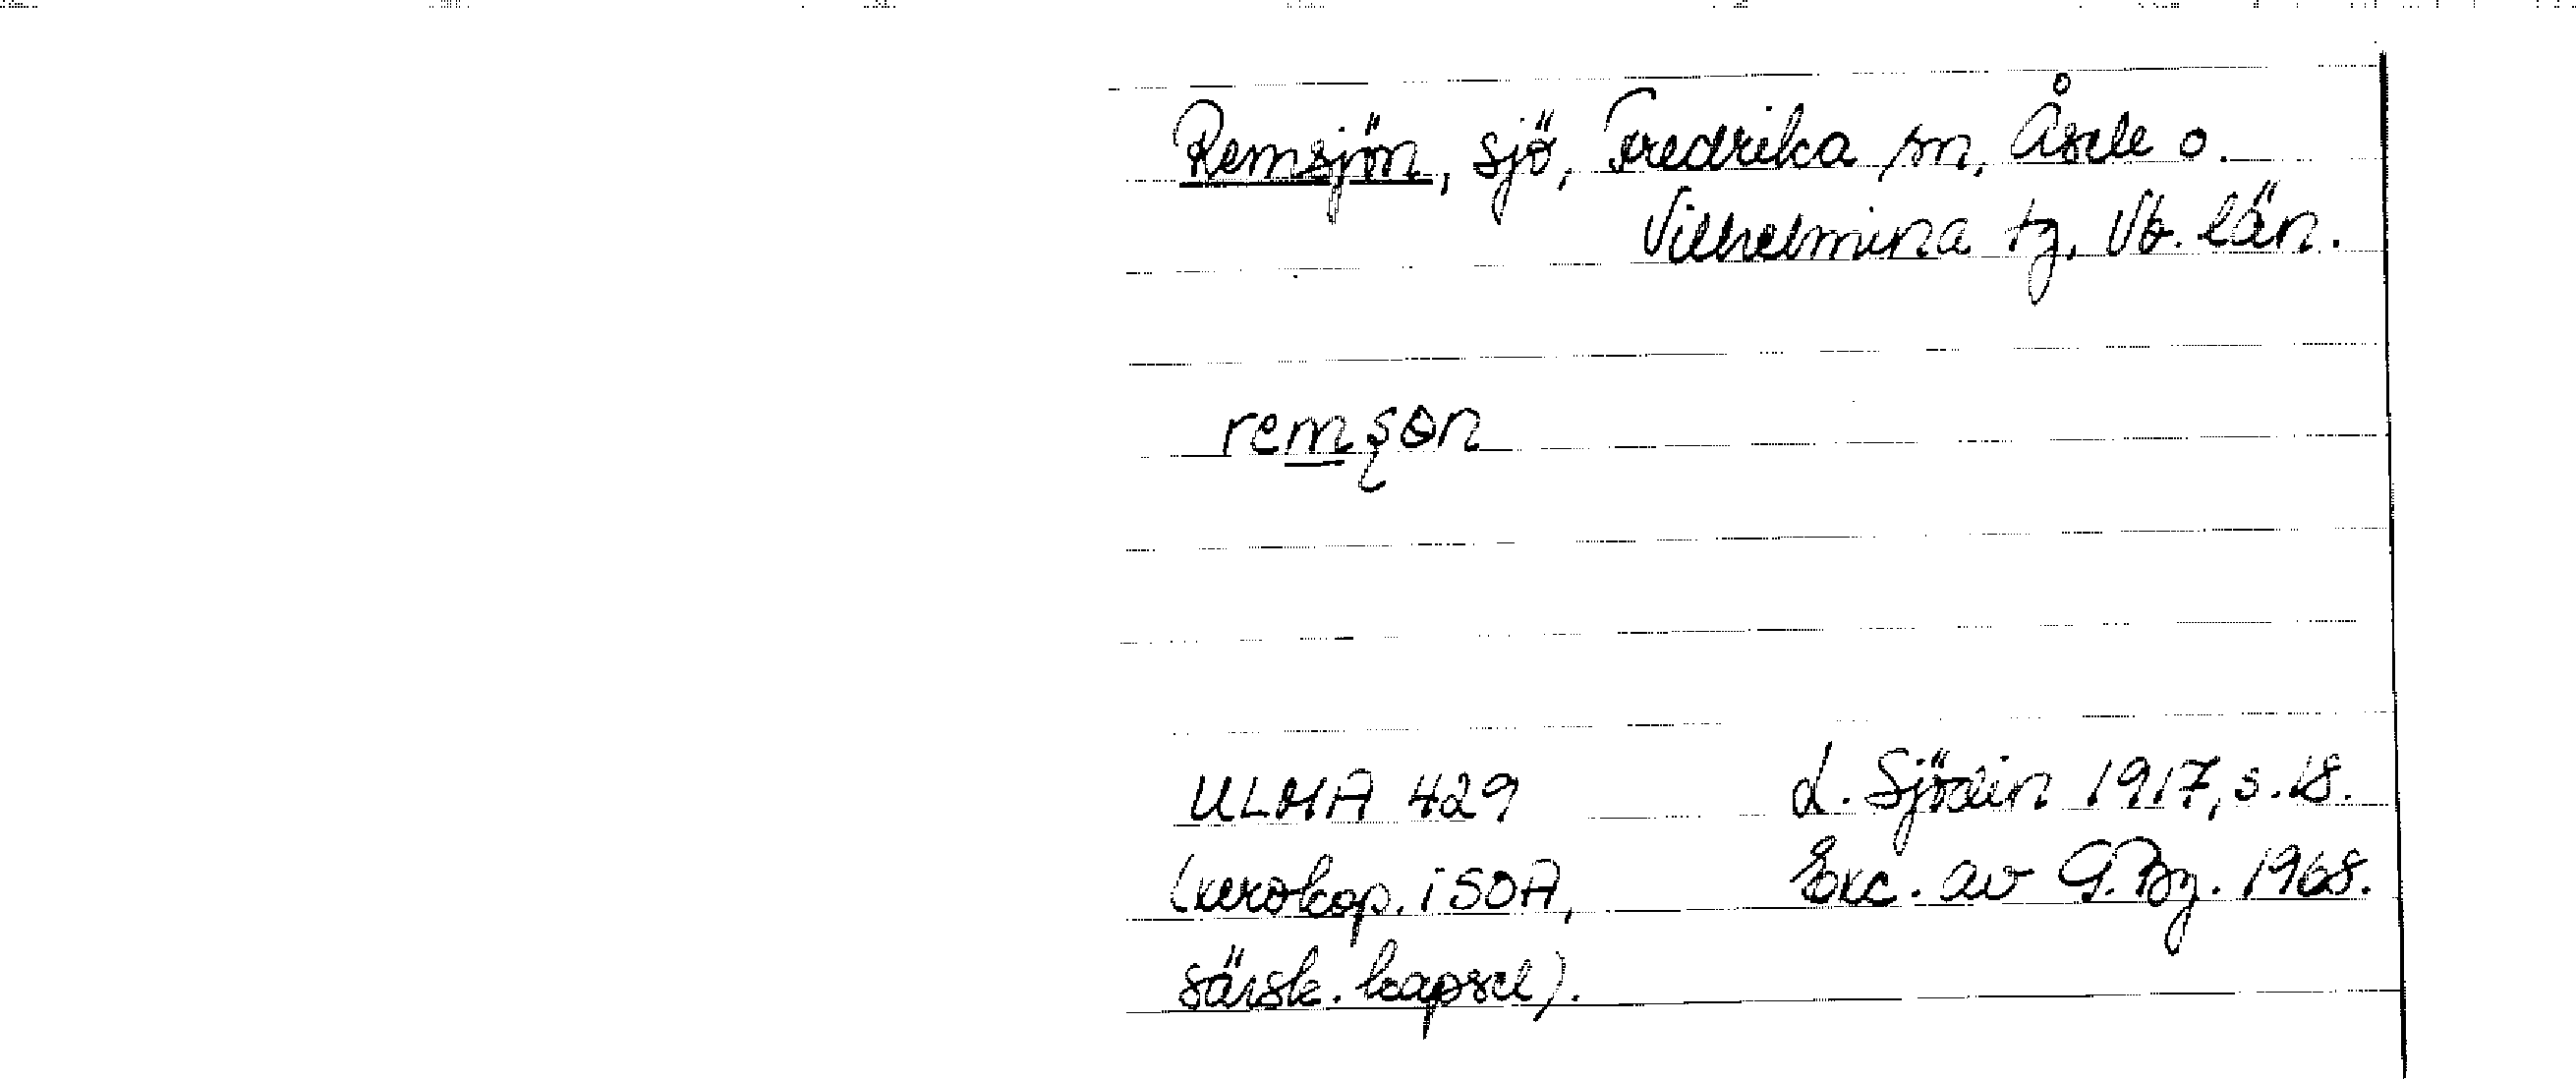 Remsjön, sjö, Fredrika sn, Åsele o.
Vilhelmina tg, Vb. län.
remşɵn
ULMA 429
(xerokop. i SOA,
särsk. kapsel).
L. Sjödin 1917, s. 18.
Exc. av G. Bg. 1968.